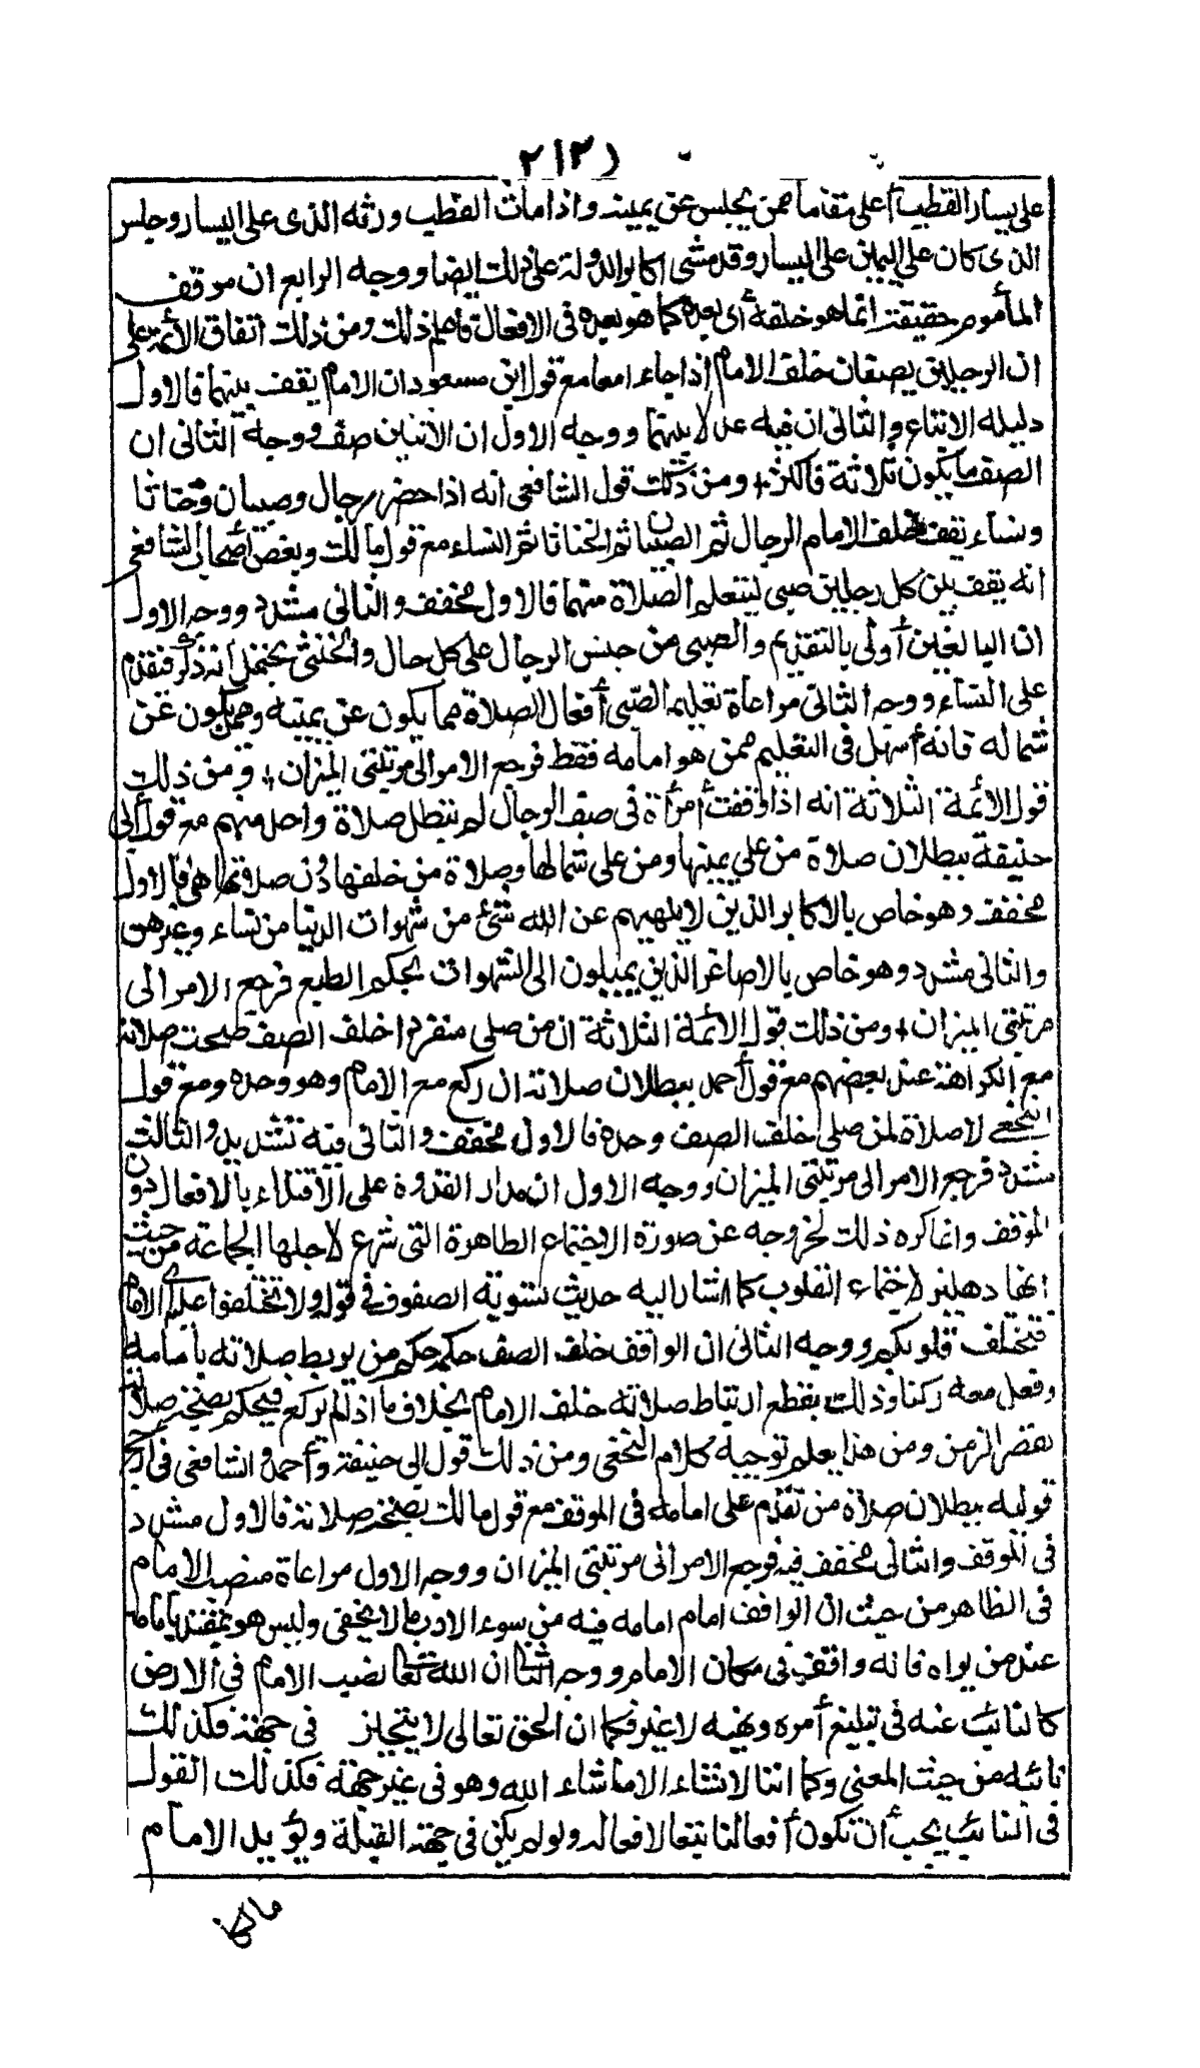 ٢١٢١
على يسار القطب أعلى مقاما ممن يجلس عن يمينه واذا مات القطب ورثه الذى على اليسار وجلس
الذى كان على اليمين على اليسار وقد مشى اكابر الدولة على ذلك ايضا ووجه الرابع ان موقف
المأموم حقيقة انما هو خلفه أى بعده كما هو بعده فى الافعال فاعلم ذلك ومن ذلك اتفاق الأئمة على
ان الرجلين يصفان خلف الامام اذا جاءا معا مع قول ابن مسعود ان الامام يقف بينهما فالاول
دليله الاتباع والثانى ان فيه عدلا بينهما ووجه الاول ان الاثنين صف ووجه الثانى ان
الصف ما يكون ثلاثة فأكثر ومن ذلك قول الشافعى انه اذا حضر رجال وصبيان وخناثا
ونساء يقف خلف الامام الرجال ثم الصبيان ثم الخناثا ثم النساء مع قول مالك وبعض أصحاب الشافعى
انه يقف بين كل رجلين صبى ليتعلم الصلاة منهما فالاول مخفف والثانى مشدد ووجه الاول
ان البالغين أولى بالتقديم والصبى من جنس الرجال على كل حال والخنثى يحتمل انه ذكر فتقدم
على النساء ووجه الثانى مراعاة تعليم الصبى أفعال الصلاة مما يكون عن يمينه وممن يكون عن
شماله فانه أسهل فى التعليم ممن هو امامه فقط فرجع الامر الى مرتبتى الميزان ومن ذلك
قول الائمة الثلاثة انه اذا وقفت أمرأة فى صف الرجال لم تبطل صلاة واحد منهم مع قول أبى
حنيفة ببطلان صلاة من على يمينها ومن على شمالها وصلاة من خلفها دون صلاتها هى فالاول
مخفف وهو خاص بالاكابر الذين لا يلهيهم عن الله شئ من شهوات الدنيا من نساء وغيرهن
والثانى مشدد وهو خاص بالاصاغر الذين يميلون الى الشهوات بحكم الطبع فرجع الامر الى
مرتبتى الميزان ومن ذلك قول الائمة الثلاثة ان من صلى منفردا خلف الصف صحت صلاته
مع الكراهة عند بعضهم مع قول أحمد ببطلان صلاته ان ركع مع الامام وهو وحده ومع قول
النخعى لا صلاة لمن صلى خلف الصف وحده فالاول مخفف والثانى فيه تشديد والثالث
مشدد فرجع الامر الى مرتبتى الميزان ووجه الاول ان مدار القدوة على الاقتداء بالافعال دون
الموقف وانما كره ذلك لخروجه عن صورة الاجتماع الظاهرة التى شرع لاجلها الجماعة من حيث
انها دهليز لاجتماع القلوب كما اشار اليه حديث تسوية الصفوف فى قوله ولا تختلفوا على الامام
فتختلف قلوبكم ووجه الثانى ان الواقف خلف الصف حكمه حكم من يربط صلاته بامامه
وفعل معه ركنا وذلك يقطع ارتباط صلاته خلف الامام بخلاف ما اذا لم يركع فيحكم بصحة صلاته
لقصر الزمن ومن هذا يعلم توجيه كلام النخعى ومن ذلك قول ابى حنيفة وأحمد والشافعى فى أرجح
قوليه ببطلان صلاة من تقدم على امامه فى الموقف مع قول مالك بصحة صلاته فالاول مشدد
فى الموقف والثانى مخفف فيه فرجع الامر الى مرتبتى الميزان ووجه الاول مراعاة منصب الامام
فى الظاهر من حيث ان الواقف امام امامه فيه من سوء الادب ما لا يخفى وليس هو بمقتد بامامه
عند من يراه فانه واقف فى مكان الامام ووجه الثانى ان الله تعالى نصب الامام فى الارض
كالنائب عنه فى تبليغ أمره ونهيه لا غير فكما ان الحق تعالى لا يتحيز فى جهة فكذلك
نائبه من حيث المعنى وكما اننا لا نشاء الا ما شاء الله وهو فى غير جهة فكذلك القول
فى النائب يجب أن تكون أفعالنا تبعا لافعاله ولو لم يكن فى جهة القبلة ويؤيد الامام
مالكا